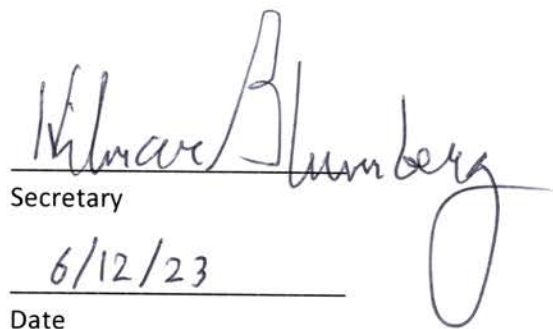 Blumberg
Secretary
6/12/23
Date